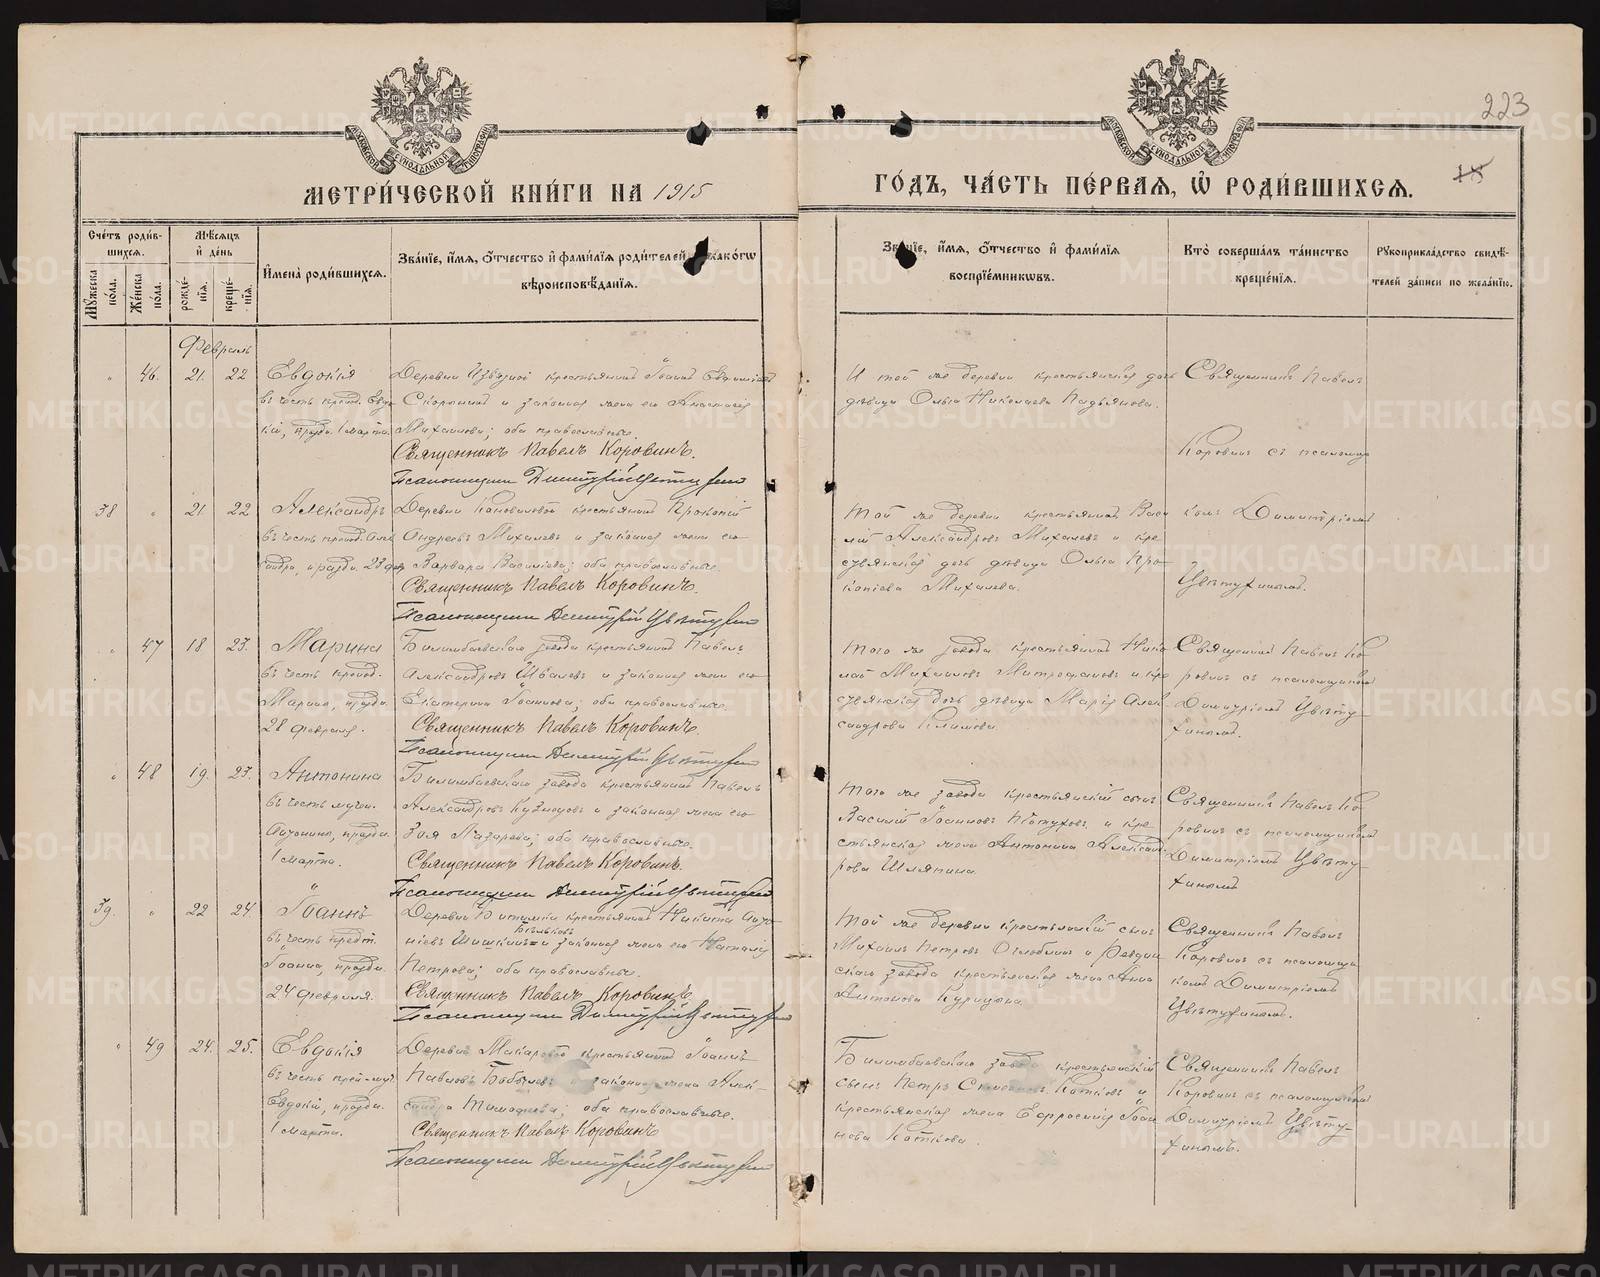 223
18
МЕТРИ́ЧЕСКОЙ КНИ́ГИ НА 1915
ГО́ДЪ, ЧА́СТЬ ПЕ́РВАѦ, Ѡ҆ РОДИ́ВШИХСѦ.
Сче́тъ роди́в-
шихсѧ.
Мꙋ́жеска по́ла.
Же́нска по́ла.
Мѣ́сѧцъ
и҆ де́нь
рожде́-
нїѧ.
креще́-
нїѧ.
И҆мена̀ роди́вшихсѧ.
Зва́нїе, и҆́мѧ, ѻ҆́тчество и҆ фами́лїѧ роди́телей, и҆ како́гѡ
вѣроисповѣ́данїѧ.
Зва́нїе, и҆́мѧ, ѻ҆́тчество и҆ фами́лїѧ
воспрїе́мникѡвъ.
Кто̀ соверша́лъ та́инство
креще́нїѧ.
Рꙋкоприкла́дство свидѣ́-
телей за́писи по жела́нїю.
Февраль
46. 21. 22
Евдокія
въ честь препод. Евдо
кіи, праздн. 1 марта.
Деревни крестьянинъ Іоаннъ
и законная жена его Анастасія
Михаилова; оба православные.
Священникъ Павелъ Коровинъ.
Псаломщикъ Димитрій Цвѣтухинъ
И той же деревни крестьянская дочь
дѣвица Ольга Николаева
Священникъ Павелъ
Коровинъ съ псаломщи
38 21 22
Александръ
въ честь препод. Алек
сандра, праздн. 23 фев.
Деревни Коноваловой крестьянинъ Прокопій
Андреевъ Михалевъ и законная жена его
Варвара Василіева; оба православные.
Священникъ Павелъ Коровинъ.
Псаломщикъ Димитрій Цвѣтухинъ
Той же деревни крестьянинъ Васи
лій Александровъ Михалевъ и кре
стьянская дочь дѣвица Ольга Про-
копіева Михалева.
комъ Димитріемъ
Цвѣтухинымъ.
47 18 23.
Марина
въ честь препод.
Марины, праздн.
28 февраля.
Билимбаевскаго завода крестьянинъ Павелъ
Александровъ и законная жена его
Екатерина Іоаннова; оба православные.
Священникъ Павелъ Коровинъ.
Псаломщикъ Димитрій Цвѣтухинъ
Того же завода крестьянинъ Нико
лай Михаиловъ Митрофановъ и кре
стьянская дочь дѣвица Марія Алек
сандрова Климова.
Священникъ Павелъ Ко
ровинъ съ псаломщикомъ
Димитріемъ Цвѣту-
хинымъ.
48 19. 23.
Антонина
въ честь мучен.
Антонины, праздн.
1 марта.
Билимбаевскаго завода крестьянинъ Павелъ
Александровъ Кузнецовъ и законная жена его
Зоя Лазарева; оба православные.
Священникъ Павелъ Коровинъ.
Псаломщикъ Димитрій Цвѣтухинъ
Того же завода крестьянскій сынъ
Василій Іоанновъ Пѣтуховъ и кре
стьянская жена Антонина Александ
рова Шляпина.
Священникъ Павелъ Ко
ровинъ съ псаломщикомъ
Димитріемъ Цвѣту-
хинымъ
39. 22 24.
Іоаннъ
въ честь предт.
Іоанна, праздн.
24 февраля.
Деревни Битимки крестьянинъ Никита Анто
ніевъ и законная жена его Наталія
Петрова; оба православные.
Священникъ Павелъ Коровинъ.
Псаломщикъ Димитрій Цвѣтухинъ
Той же деревни крестьянскій сынъ
Михаилъ Петровъ и Ревдин
скаго завода крестьянская жена Анна
Антонова Курицына.
Священникъ Павелъ
Коровинъ съ псаломщи
комъ Димитріемъ
Цвѣтухинымъ.
49 24. 25.
Евдокія
въ честь преп-муч.
Евдокіи, праздн.
1 марта.
Деревни Макаровой крестьянинъ Іоаннъ
Павловъ Бобылевъ и законная жена Алек-
сандра Тимофеева; оба православные.
Священникъ Павелъ Коровинъ
Псаломщикъ Димитрій Цвѣтухинъ
Билимбаевскаго завода крестьянскій
сынъ Петръ Котковъ и
крестьянская жена Ефросинія Іоан
нова Коткова.
Священникъ Павелъ
Коровинъ съ псаломщикомъ
Димитріемъ Цвѣту-
хинымъ.
METRIKI.GASO-URAL.RU